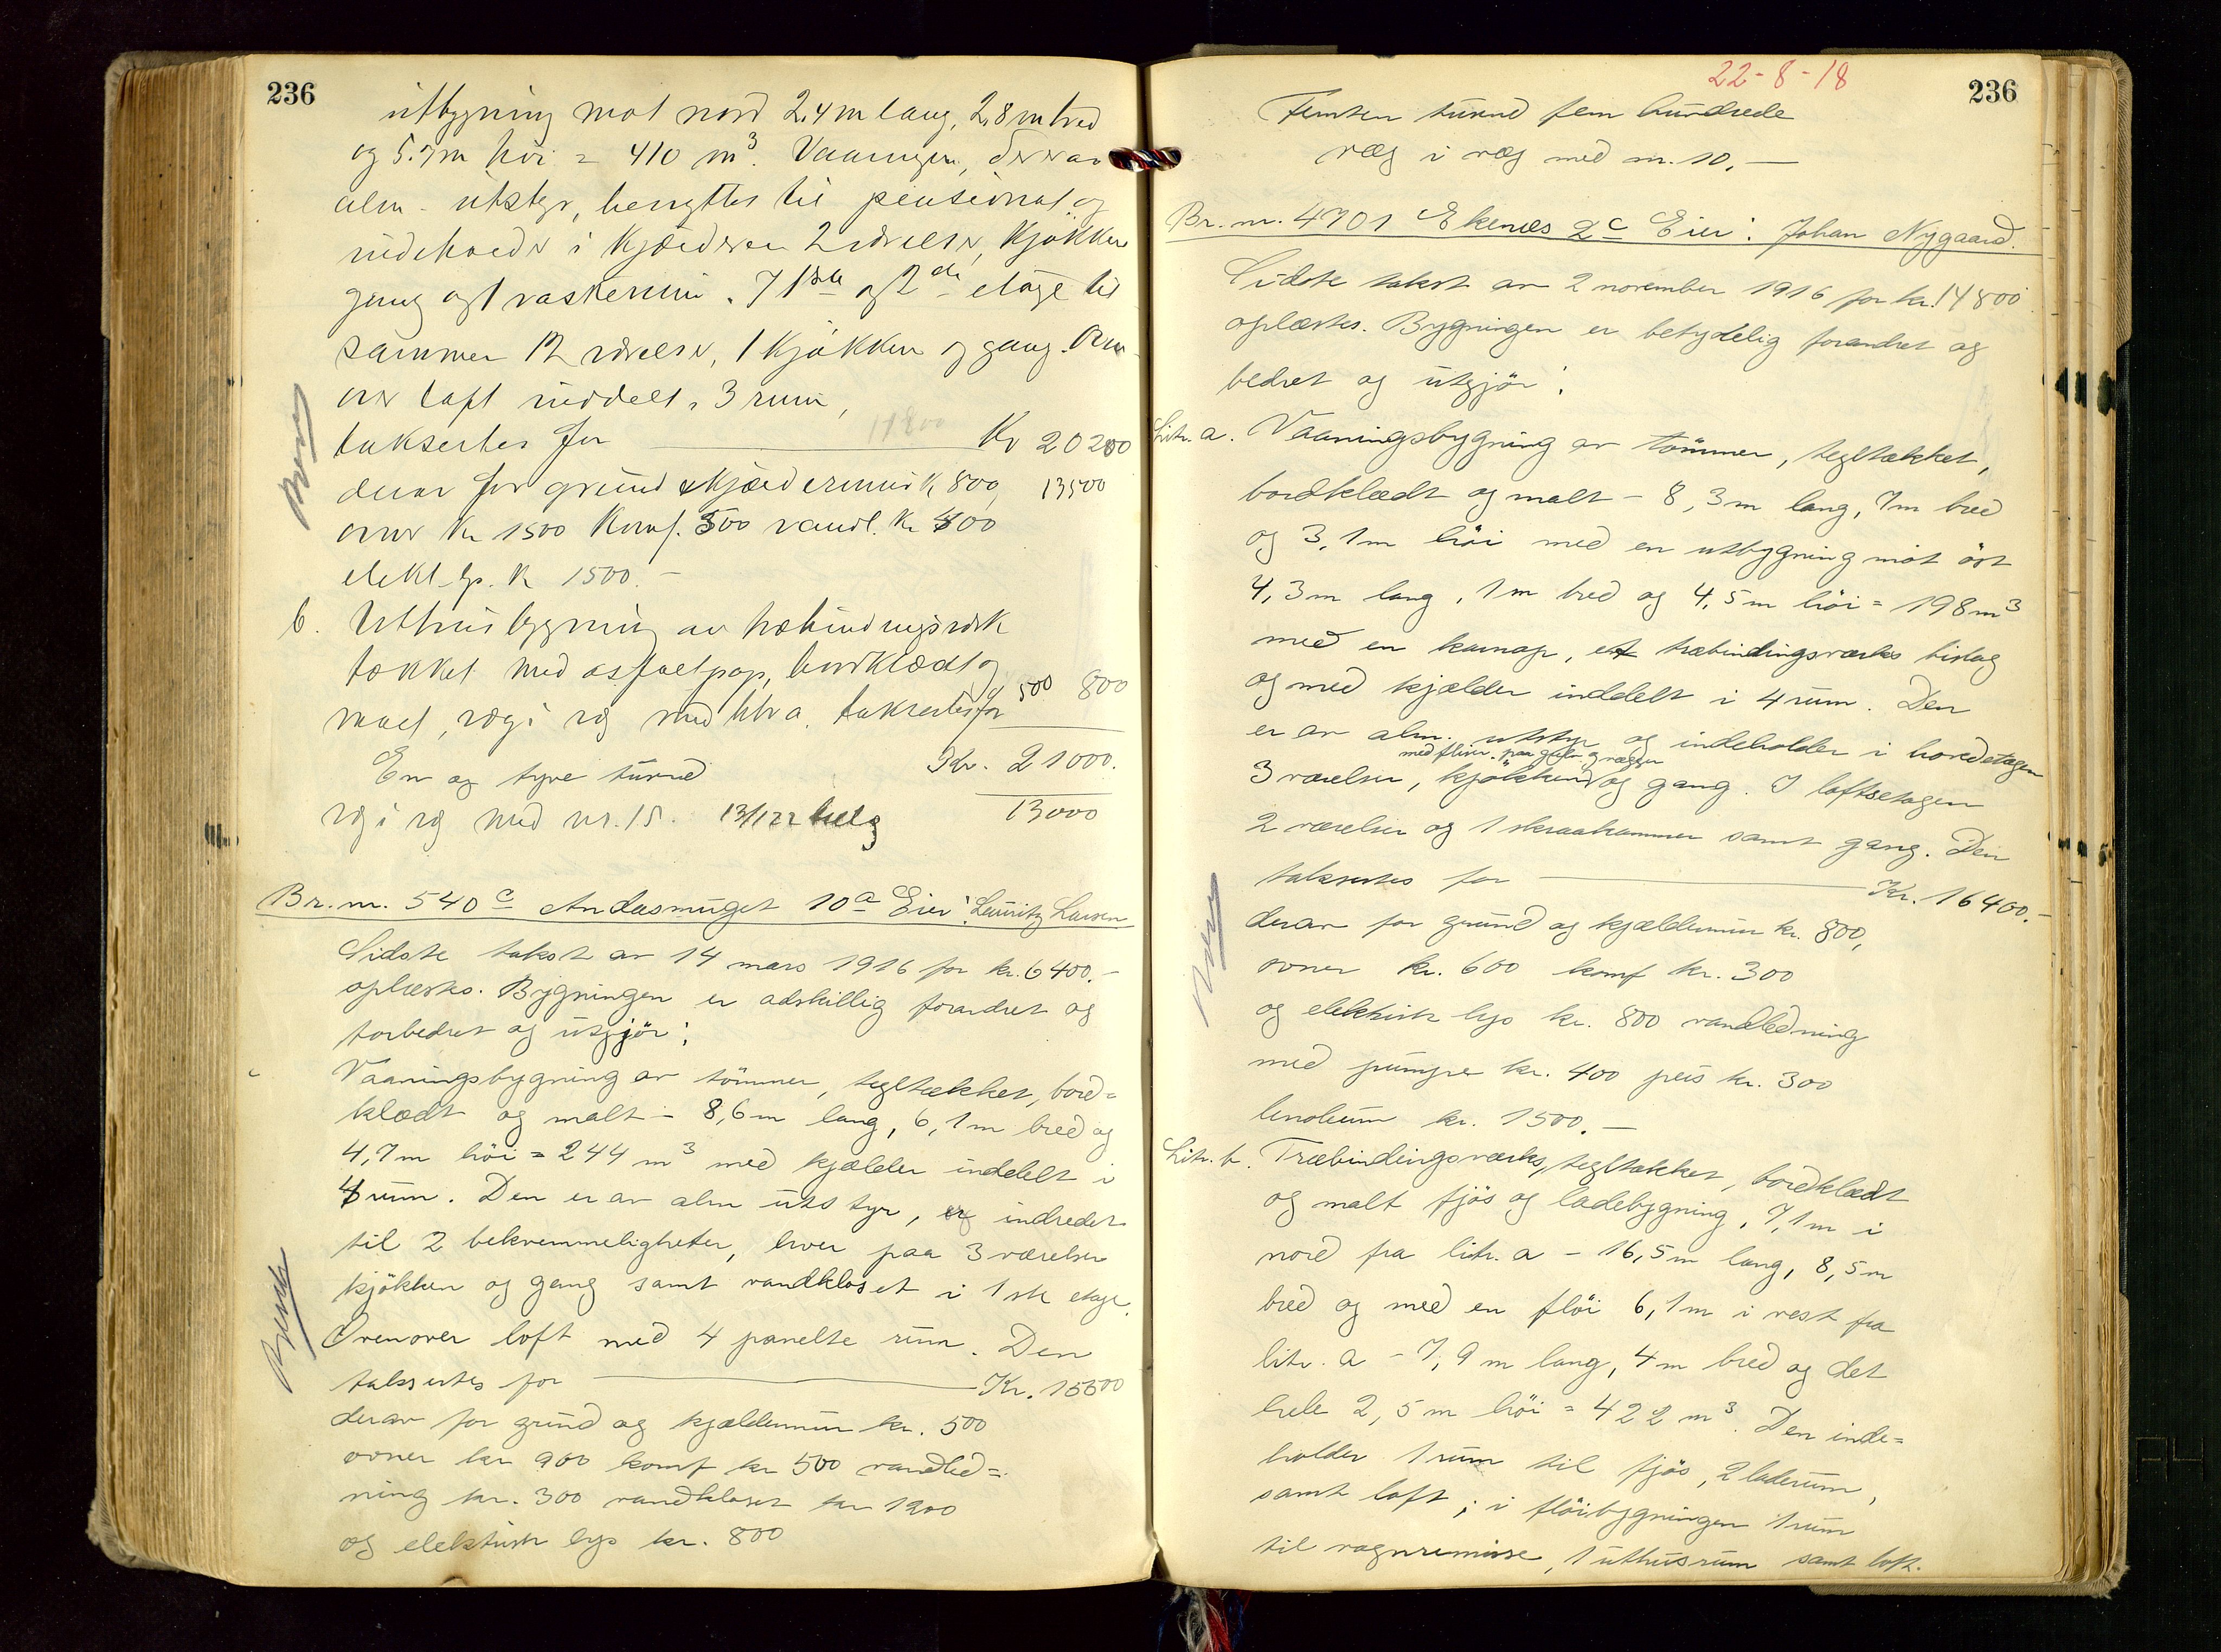 236
utbygning mot nord 2,4 m lang, 2,8 m bred
og 5.7m høi = 410 m³. Vaaningen, der er av
alm. utstyr, benyttes til pensionat og
indeholder i kjælderen 2 værelser, kjøkken
gang og 1 vaskerum. I 1ste og 2den etage til
sammen 12 værelser, 1 kjøkken og gang. Oven
over loft inddelt i 3 rum,
taksertes for 11800 Kr 20200
derav for grund & kjældermur K 800, 13500
ovner Kr 1500 Komf. 500 vandl. Kr 400
elekt. lys. K 1500.-
b. Uthusbygning av træbindingsverk
tækket med asfaltpap, bordklædt og
malt, væg i væg med litr a. taksertes for 500 800
En og tyve tusind Kr. 21000.
væg i væg med nr. 15. 13/1 22 13000
Br. nr. 540c Andasmuget 10a Eier: Lauritz Larsen
Sidste takst av 14 mars 1916 for kr. 6400.-
oplæstes. Bygningen er adskillig forandret og
forbedret og utgjør:
Vaaningsbygning av tömmer, tegltækket, bord=
klædt og malt - 8,6m lang, 6,1m bred og
4,7m höi = 244 m³ med kjælder inddelt i
4 rum. Den er av alm utstyr, er indredet
til 2 bekvemmeligheter, hver paa 3 værelser
kjökken og gang samt vandkloset i 1ste etage.
Ovenover loft med 4 panelte rum. Den
taksertes for Kr. 15500
derav for grund og kjældermur kr. 500
ovner kr 900 komf kr 500 vandled=
ning kr. 300 vandkloset kr 1200
og elektrisk lys kr. 800
22-8-18
236
Femten tusind fem hundrede
væg i væg med nr. 10.-
Br. nr. 4701 Ekenæs 2c Eier: Johan Nygaard.
Sidste takst av 2 november 1916 for kr. 14800
oplæstes. Bygningen er betydelig forandret og
bedret og utgjör:
Litr. a. Vaaningsbygning av tömmer, tegltækket,
bordklædt og malt - 8,3m lang, 7m bred
og 3,1m höi med en utbygning mot öst
4,3m lang, 1m bred og 4,5m höi = 198m³
med en karnap, et træbindingsværks bislag
og med kjælder inddelt i 4 rum. Den
er av alm. utstyr og indeholder i hovedetagen
med fliser paa gulv og vægger
3 værelser, kjøkken og gang. I loftsetagen
2 værelser og 1 skraakammer samt gang. Den
taksertes for Kr. 16400.-
derav for grund og kjældermur kr. 800,
ovner kr. 600 komf kr. 300
og elektrisk lys kr. 800 vandledning
med pumper kr. 400 peis kr. 300
linoleum kr. 1500.-
Litr. b. Træbindingsværks, tegltækket, bordklædt
og malt fjös og ladebygning, 7,1m i
nord fra litr. a - 16,5m lang, 8,5m
bred og med en flöi 6,1m i vest fra
litr. a - 7,9 m lang, 4m bred og det
hele 2,5m höi = 422 m³. Den inde=
holder 1 rum til fjös, 2 laderum,
samt loft; i flöibygningen 1 rum
til vognremisse, 1 uthusrum samt loft.